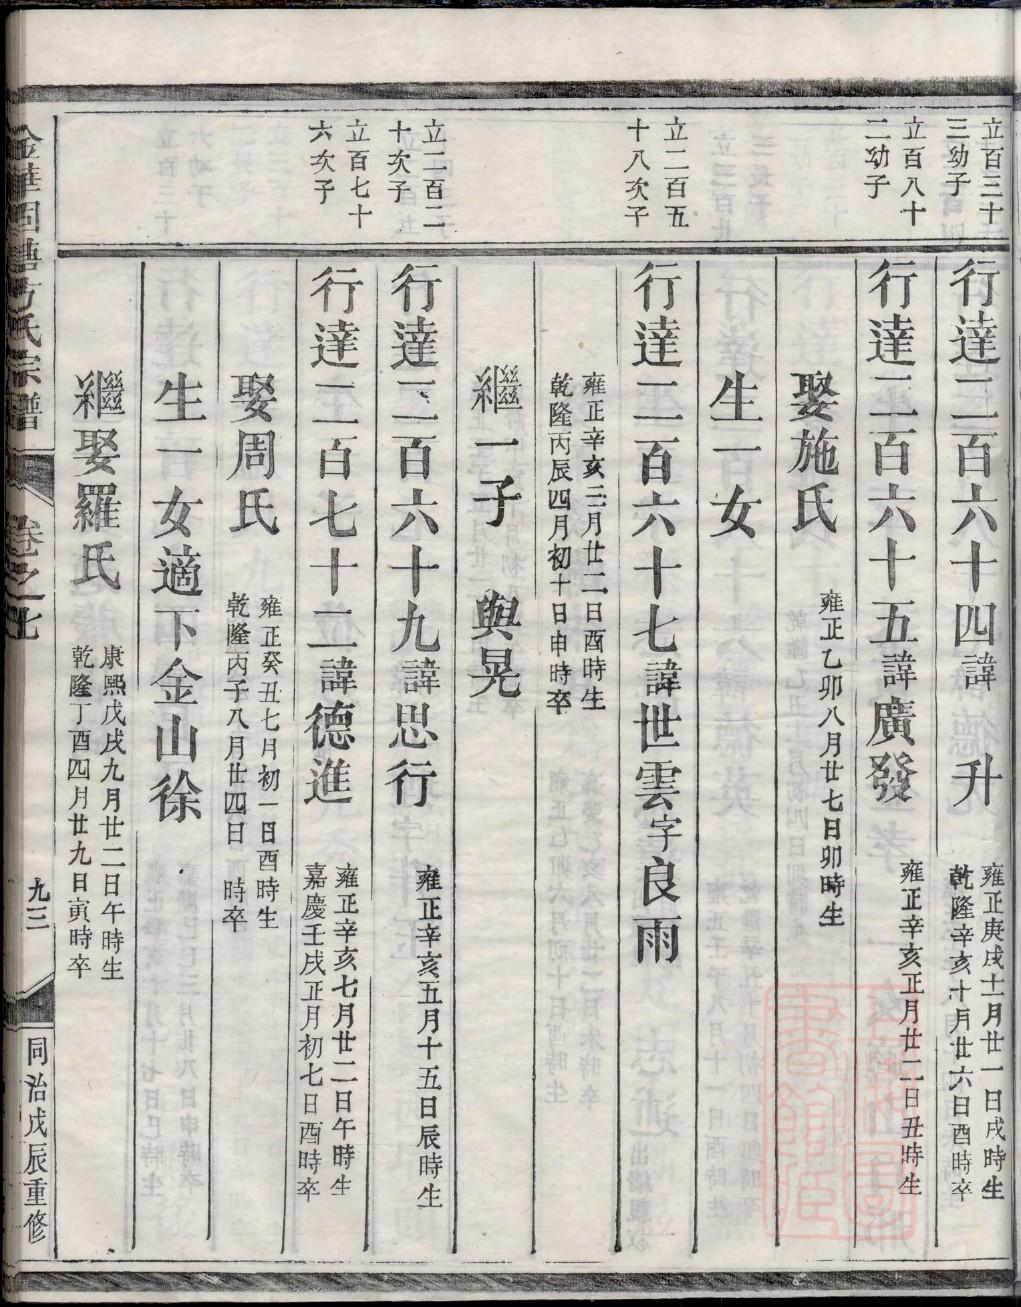 立百三十
三幼子
行達二百六十四諱 升
雍正庚戌十一月廿一日戌時生
乾隆辛亥十月廿六日酉時卒
立百八十
二幼子
行達二百六十五諱廣發
雍正辛亥正月廿二日丑時生
娶施氏
雍正乙卯八月廿七日卯時生
生一女
立二百五
十八次子
行達二百六十七諱世雲字良雨
雍正辛亥三月廿二日酉時生
乾隆丙辰四月初十日申時卒
繼一子 與晃
立二百二
十次子
行達二百六十九諱思行
雍正辛亥五月十五日辰時生
立百七十
六次子
行達二百七十一諱德進
雍正辛亥七月廿二日午時生
嘉慶壬戌正月初七日酉時卒
娶周氏
雍正癸丑七月初一日酉時生
乾隆丙子八月廿四日 時卒
生一女適下金山徐
繼娶羅氏
康熙戊戌九月廿二日午時生
乾隆丁酉四月廿九日寅時卒
方氏宗譜
卷之七
九三
同治戊辰重修